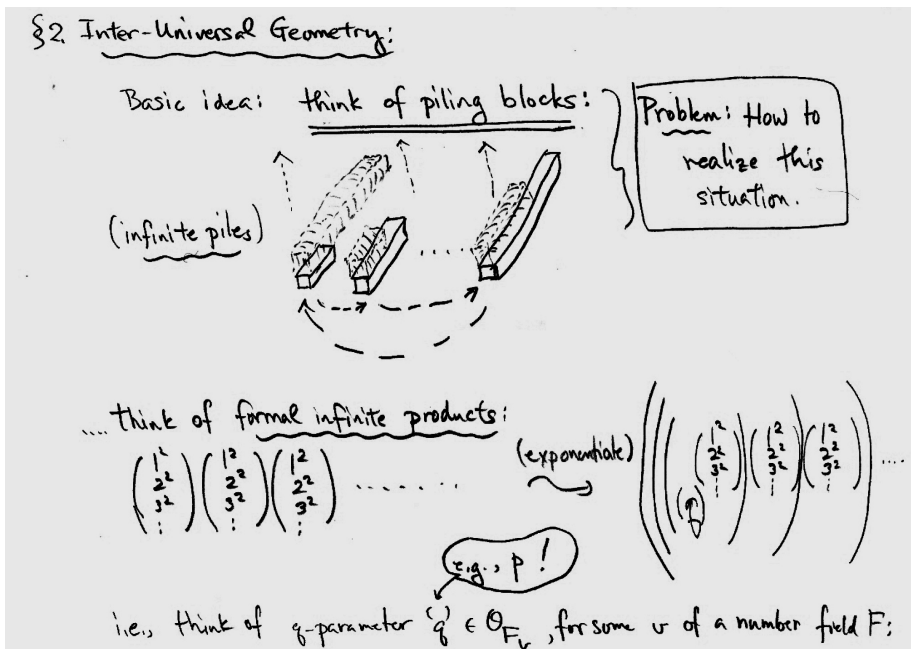 §2. Inter-Universal Geometry:
Basic idea: think of piling blocks:
Problem: How to
realize this
situation.
(infinite piles)
.... think of formal infinite products:
(1² 2² 3² ⋮) (1² 2² 3² ⋮) (1² 2² 3² ⋮) ........
(exponentiate)
(((( ) (1² 2² 3² ⋮)) (1² 2² 3² ⋮)) (1² 2² 3² ⋮)) ....
e.g., p!
i.e., think of q-parameter 'q' ∈ O_{F_v}, for some v of a number field F: